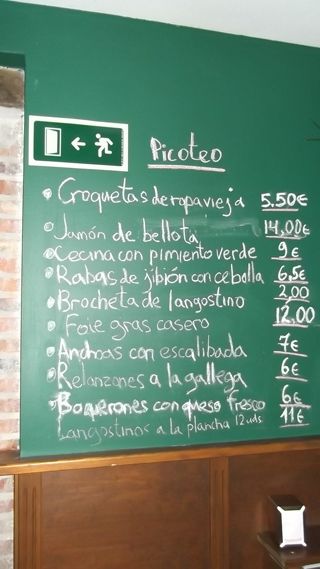 Picoteo
Croquetas de ropa vieja 5.50€
Jamón de bellota 14,00€
Cecina con pimiento verde 9€
Rabas de jibión con cebolla 6,5€
Brocheta de langostino 2,00
Foie gras casero 12,00
Anchoas con escalibada 7€
Relanzones a la gallega 6€
Boquerones con queso fresco 6€
Langostinos a la plancha 12 uds. 11€